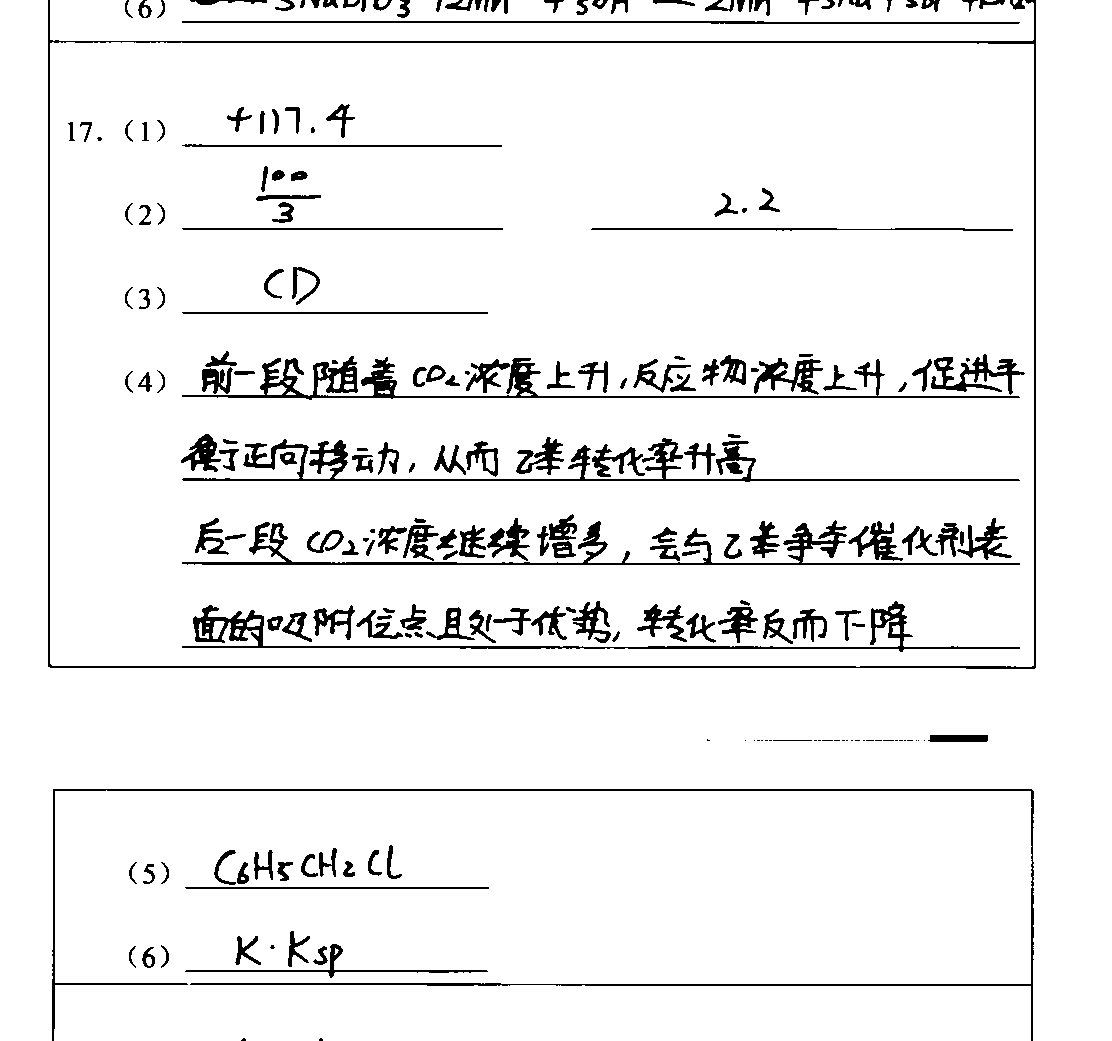 (6) 3NaBiO3
17. (1) +117.4
(2) 100/3 2.2
(3) CD
(4) 前一段随着CO₂浓度上升,反应物浓度上升,促进平
衡正向移动,从而乙苯转化率升高
后一段CO₂浓度继续增多,会与乙苯争夺催化剂表
面的吸附位点且处于优势,转化率反而下降
(5) C6H5CH2Cl
(6) K·Ksp